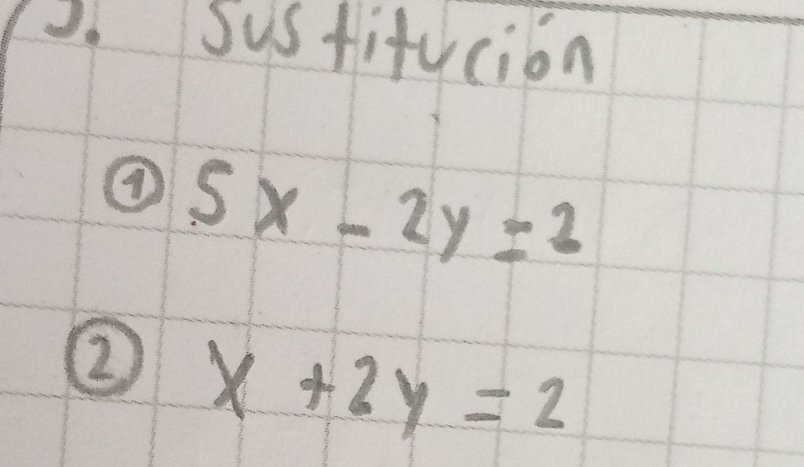 Sustitución
① 5x - 2y = 2
② x + 2y = 2